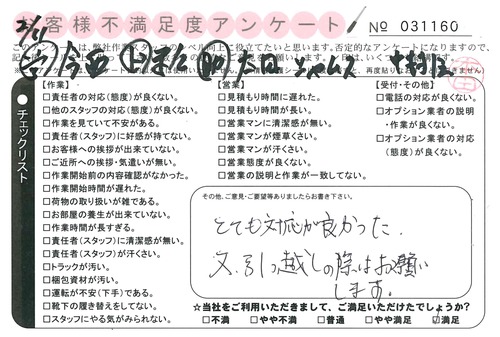 お客様不満足度アンケート
№ 031160
2/4
チェックリスト
【作業】
□責任者の対応(態度)が良くない。
□他のスタッフの対応(態度)が良くない。
□作業を見ていて不安がある。
□責任者(スタッフ)に好感が持てない。
□お客様への挨拶が出来ていない。
□ご近所への挨拶・気遣いが無い。
□作業開始前の内容確認がなかった。
□作業開始時間が遅れた。
□荷物の取り扱いが雑である。
□お部屋の養生が出来ていない。
□作業時間が長すぎる。
□責任者(スタッフ)に清潔感が無い。
□責任者(スタッフ)が汗さい。
□トラックが汚い。
□梱包資材が汚い。
□運転が不安(下手)である。
□靴下の履き替えをしてない。
□スタッフにやる気がみられない。
【営業】
□見積もり時間に遅れた。
□見積もり時間が長い。
□営業マンに清潔感が無い。
□営業マンが煙草くさい。
□営業マンが汗くさい。
□営業態度が良くない。
□営業の説明と作業が一致してない。
【受付・その他】
□電話の対応が良くない。
□オプション業者の説明
・作業が良くない。
□オプション業者の対応
(態度)が良くない。
その他、ご意見・ご要望等ありましたらお書き下さい。
とても対応が良かった。
又、引っ越しの際はお願い
します。
☆当社をご利用いただきまして、ご満足いただけたでしょうか?
□不満 □やや不満 □普通 □やや満足 □満足